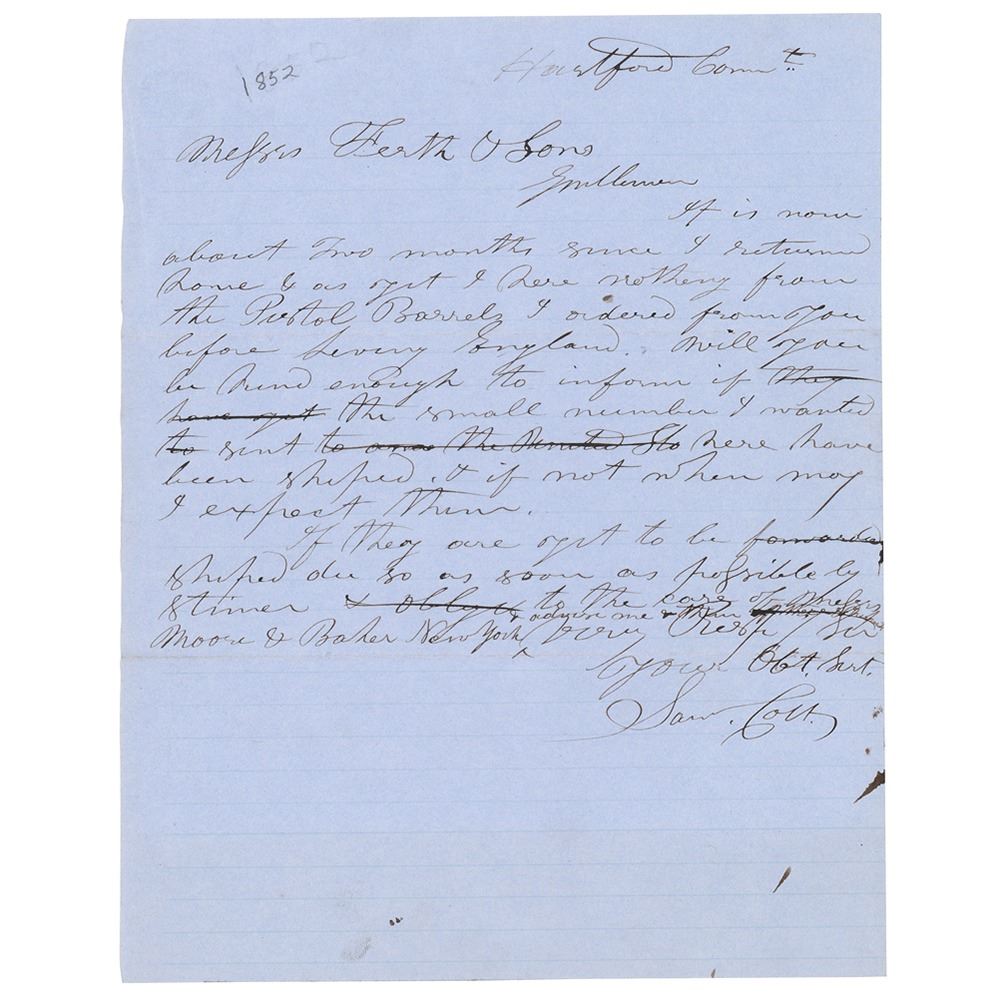 1852
Hartford Connt.
Messrs Ferth & Sons
Gentlemen
It is now
about Two months since I returned
home & as yet I here nothing from
the Pistol Barrels I ordered from you
before leving England. Will you
be kind enough to inform if they
have yet the small number I wanted
to sent to the United Sts here have
been shiped. & if not when may
I expect them.
If they are yet to be forwarded
shiped du so as soon as possible by
stimer & oblige to the care of Messrs
& advise me
Moore & Baker New York, very Respy
Your Obt. Sert.
Sam. Colt.